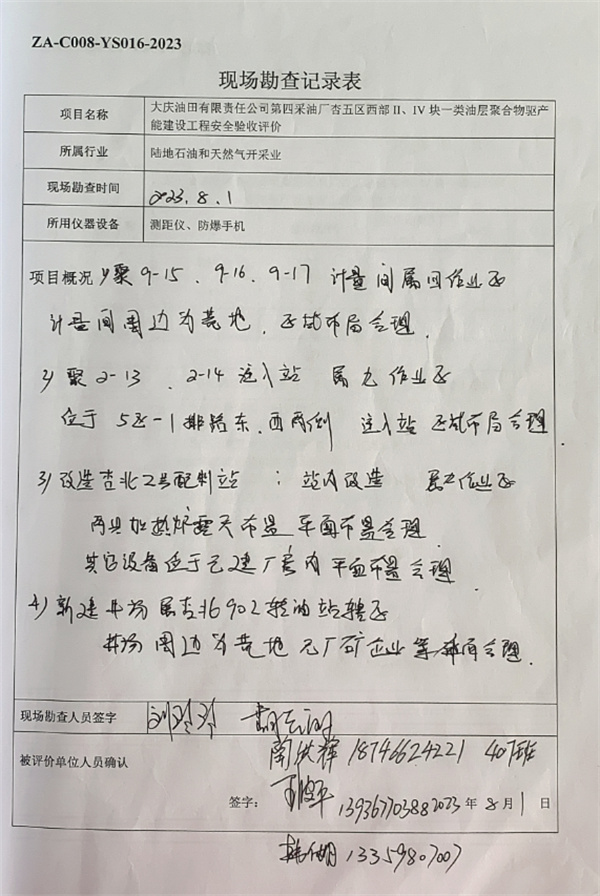 ZA-C008-YS016-2023
现场勘查记录表
项目名称
大庆油田有限责任公司第四采油厂杏五区西部 II、IV 块一类油层聚合物驱产
能建设工程安全验收评价
所属行业
陆地石油和天然气开采业
现场勘查时间
2023.8.1
所用仪器设备
测距仪、防爆手机
项目概况 1)聚9-15、9-16、9-17 计量间属四作业区
计量间周边为荒地,区域布局合理.
2) 聚2-13、2-14注入站 属九作业区
位于5区-1排路东、西两侧 注入站区域布局合理
3) 改造杏北2号配料站:站内改造 属九作业区
两具加热炉露天布置 平面布置合理.
其它设备位于已建厂房内 平面布置合理.
4) 新建井场属杏北902转油站辖区
井场周边为荒地 无厂矿企业等 布局合理.
现场勘查人员签字
被评价单位人员确认
18746624221 407班
签字:
13936770388 2023 年 8 月 1 日
13359807007